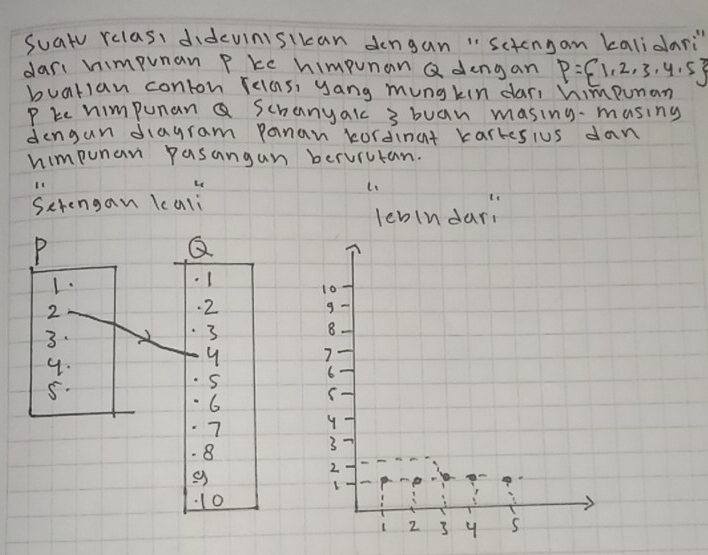 Suatu relasi didevinisikan dengan "setengan kali dari"
dari himpunan P ke himpunan Q dengan P={1,2,3,4,5}
buatlan conton relasi yang mungkin dari himpunan
P ke himpunan Q sebanyak 3 buan masing-masing
dengan diagram panan kordinat kartesius dan
himpunan pasangan berurutan.
"Setengan kali"
"lebin dari"
P
1.
2
3.
4.
5.
Q
.1
.2
.3
4
.5
.6
.7
.8
9
.10
10
9
8
7
6
5
4
3
2
1
1 2 3 4 5